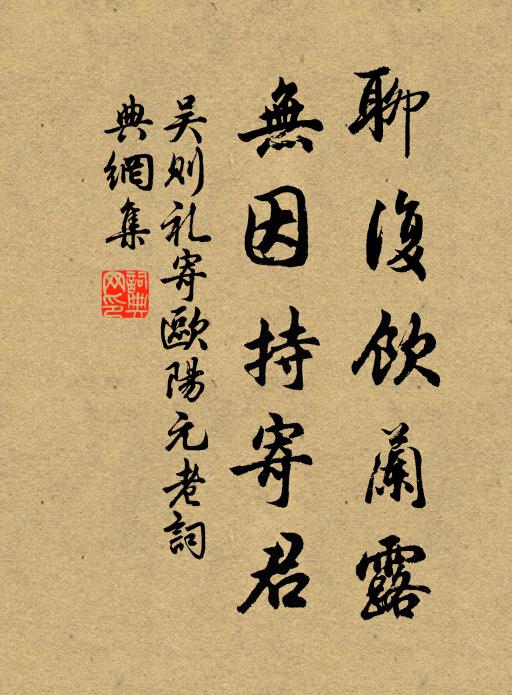 聊復飲蘭露
無因持寄君
吴则礼寄歐陽元老詞
典網集
詞典网印